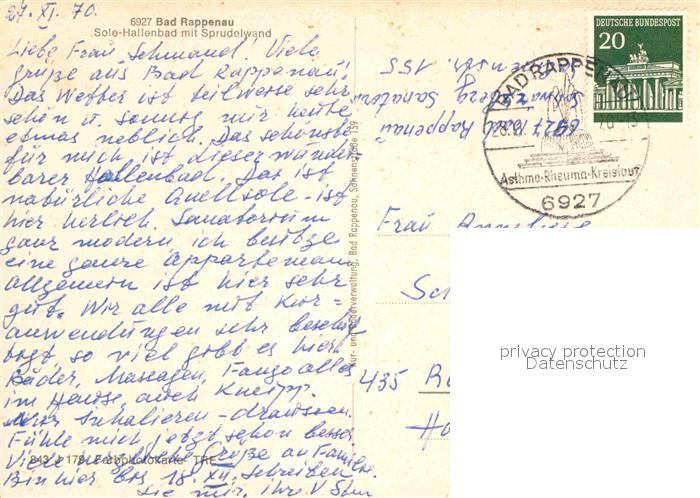 27. XI. 70.
6927 Bad Rappenau
Sole-Hallenbad mit Sprudelwand
Liebe Frau Schmand! Viele
grüße aus Bad Rappenau!
Das Wetter ist teilweise sehr
schön u. sonnig nur heute
etwas neblich. Das schönste
für mich ist dieser wunder
barer Hallenbad. Das ist
natürliche Quellsole - ist
hier herlich. Sanatorium
ganz modern, ich besitze
eine ganze Apparteman
allgemein ist hier sehr
gut. Wir alle mit Kur=
anwendungen sehr beschäf
tigt, so viel gibt es hier.
Bäder, Massagen, Fango alles
im Hause, auch Kneipp.
Nur Inhalieren - draussen.
Fühle mich jetzt schon besser
Viele herzliche Grüße an Familie.
843 J 179 Farbphotokarte TRE
Bin hier bis 18. XII. Schreiben
Sie mir. ihre V
Kur- und Bäderverwaltung, Bad Rappenau, Salinenstraße 159
DEUTSCHE BUNDESPOST
20
BAD RAPPENAU
70-15
Asthma-Rheuma-Kreislauf
6927
6927 Bad Rappenau
155
Frau Anneliese
Sch
435 Re
Ha
privacy protection
Datenschutz